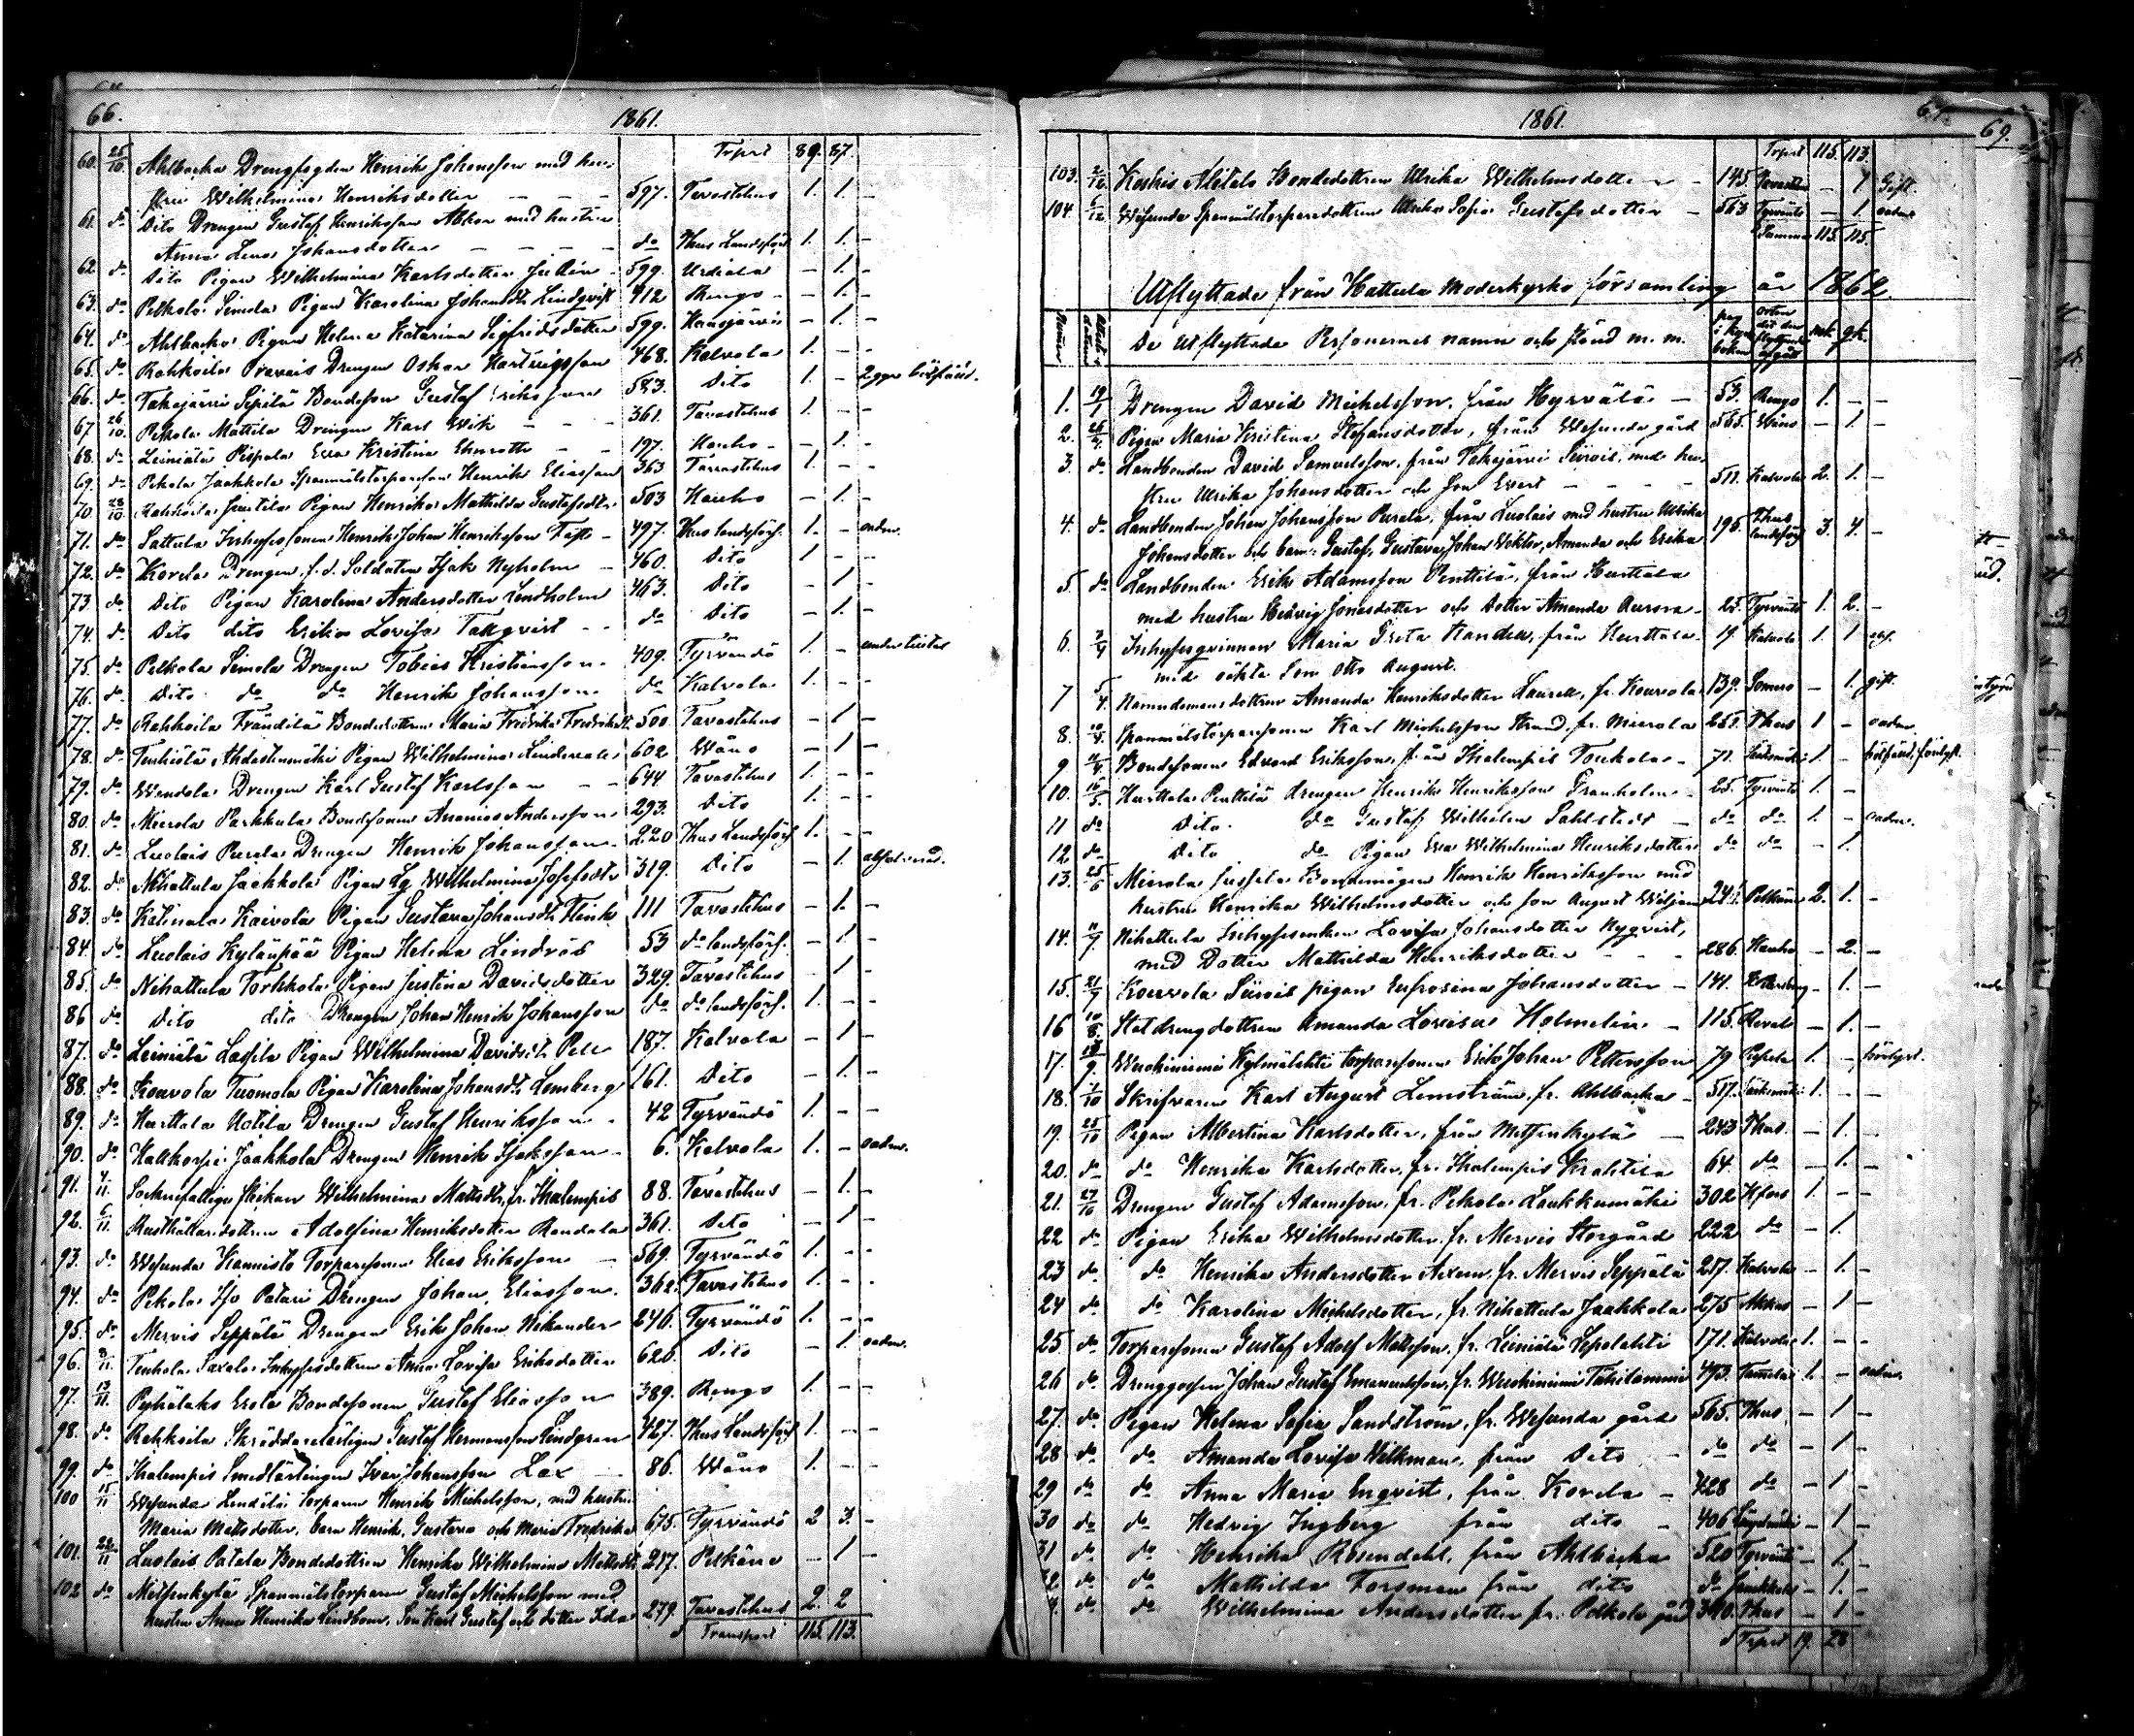 66.
1861.
Trprt 89. 87.
60. 25/10. Ahlbacka Drengfogden Henrik Johansson med hus-
fru Wilhelmina Henriksdotter – – 597. Tavastehus 1. 1. –
61. do Dito Drengen Gustaf Henriksson med hustru
Anna Lena Johansdotter – – – – do Thus Landsförs 1. 1. –
62. do Dito Pigan Wilhelmina Karlsdotter – 599. Urdiala – 1. –
63. do Pelkola Simola Pigan Karolina Johansdr Lindqvist 412 Rengo – – 1. –
64. do Ahlbacka Pigan Helena Katarina Sigfridsdotter 599. Hausjärvi – 1. –
65. do Rahkoila Drengen Oskar 468. Kalvola 1. – –
66. do Takajärvi Sipilä Bondeson Gustaf Eriksson 583. Dito 1. – 2 ggr
67 26/10. Pekola Mattila Drengen Karl Wik – – 361. Tavastehus 1. – –
68. do Leiniälä Pispala Eva Kristina Ehnroth – – 197. Hauho – – 1. –
69. do Pekola Jaakkola Spanmålstorpareson Henrik Eliasson 363 Tavastehus 1. – –
70. 28/10 Rahkoila Juutila Pigan Henrika Mathilda Gustafsdtr 503 Hauho – 1. –
71. do Sattula Inhysessonen Henrik Johan Henriksson – 497. Thus Landsförs. 1. – oadm.
72. do Korda Drengen f.d. Soldaten Isak Nyholm – 460. Dito 1 – –
73. do Dito Pigan Karolina Andersdotter Lindholm 463. Dito – 1. –
74. do Dito dito Erika Lovisa Tallqvist – – do Dito – 1. –
75. do Pelkola Simola Drengen Tobias Kristiansson – 409. Tyrvändö 1. –
76. do Dito do do Henrik Johansson – do Kalvola 1. –
77. do Rahkoila Frändilä Bondedottren Maria Fredrika Fredriksdr 500. Tavastehus – 1 –
78. do Tenhiälä Ahdastenmäki Pigan Wilhelmina 602 Wåno – 1 –
79. do Wendola Drengen Karl Gustaf Karlsson – – 644 Tavastehus 1. – –
80. do Mierola Parkkula Bondesonen Ananias Andersson 293. Dito 1. – –
81. do Luolais Purala Drengen Henrik Johansson 220 Thus Landsförs 1. – –
82. do Nihattula Jaakkola Pigan Wilhelmina Josefsdtr 319. Dito – 1.
83. do Katinala Koivola Pigan Gustava Johansdr 111 Tavastehus – 1. –
84. do Luolais Kyläupää Pigan Helena Lindroos 53 do landsförs. – 1. –
85. do Nihattula Torkkola Pigan Justina Davidsdotter 329. Tavastehus – 1 –
86 do Dito dito Drengen Johan Henrik Johansson do do landsförs. 1. – –
87. do Leiniälä Lassila Pigan Wilhelmina Davidsdr 187. Kalvola – 1 –
88. do Kouvola Tuomola Pigan Karolina Johansdr Lemberg 161. Dito – 1. –
89. do Hurttala Uotila Drengen Gustaf Henriksson – 42 Tyrvändö 1. – –
90. do Halkorpi Jaakkola Drengen Henrik Isaksson – 6. Kalvola 1. – oadm.
91. 4/11. Socknefattige flickan Wilhelmina Mattsdr, fr. Ihalempis 88. Tavastehus – 1. –
92. 6/11. Rusthållaredottren Adolfina Henriksdotter 361. Dito – 1 –
93. do Wesunda Kannisto Torparesonen Elias Eriksson – 569. Tyrvändö 1. – –
94. do Pekola Iso Patari Drengen Johan Eliasson. 362. Tavastehus 1. – –
95. do Mervis Seppälä Drengen Erik Johan Nikander 240. Tyrvändö 1. – –
96. 8/11. Tenhola Saxala Inhysesdottren Anna Lovisa Eriksdotter 626. Dito – 1. oadm.
97. 13/11. Pyhälahti Erola Bondesonen Gustaf Eliasson 389. Rengo 1. – –
98. do Rahkoila Skräddarelärlingen Gustaf Hermansson Lindgren 427. Thus Landsförs 1. – –
99. do Ihalempis Smedlärlingen Ivar Johansson Lax – 86. Wåno 1. – –
100 15/11 Wesunda Torparen Henrik Michelsson, med hustru
Maria Mattsdotter, barn Henrik, Gustava och Maria Fredrika 675. Tyrvändö 2 3. –
101. 22/11 Luolais Patala Bondedottren Henrika Wilhelmina Mattsdr 217. Pelkäne – 1 –
102 do Metsenkylä Spanmålstorparen Gustaf Michelsson med
hustru Anna Henrika Lindbom, Son Karl Gustaf och dotter Ida 279. Tavastehus 2. 2
Transport 115. 113.
67.
69.
1861.
Trprt 115. 113.
103. Alitalo Bondedottren Ulrika Wilhelmsdotter – 145. – 1 Gift.
104. 6/12 Wesunda Spanmålstorparedottren Ulrika Sofia Gustafsdotter – 563 Tyrväntö – 1. oadm.
Summa 115. 115.
Utflyttade från Hattula Moderkyrko församling år 1862
De utflyttade Personernas namn och stånd m. m. mk. qk.
1. 19/1 Drengen David Michelsson, från Hyrvälä – 53. Rengo 1. – –
2. Pigan Maria Kristina Stefansdotter, från Wesunda gård 565. Wåno – 1. –
3. do Landbonden David Samuelsson, från Takajärvi med hus-
fru Ulrika Johansdotter och Son Evert – – – – 511. Kalvola 2. 1. –
4. do Landbonden Johan Johansson Purala, från Luolais med hustru Ulrika
Johansdotter och barn: Gustaf, Gustava, Johan Viktor, Amanda och Erika 195. Thus Landsförs 3. 4. –
5 do Landbonden Erik Adamsson Penttilä, från Hurttala
med hustru Hedvig Jonasdotter och Dotter Amanda Aurora – 25. Tyrväntö 1. 2. –
6. Inhysesqvinnan Maria Greta Kandell, från Hurttala. 19. Kalvola 1. 1
med oäkta Son Otto August.
7 5/4. Namndemansdottren Amanda Henriksdotter Laurell, fr. Kouvola 139. Somero – 1. gift.
8. 10/4. Spanmålstorparesonen Karl Michelsson Strand, fr. Mierola 251. Thus 1. – oadm.
9 Bondesonen Edvard Eriksson, från Ihalempis Torkola – 71. Sääksmäki 1. –
10. Hurttala Penttilä drengen Henrik Henriksson Granholm – 25. Tyrväntö 1. –
11 do Dito do Gustaf Wilhelm Sahlstedt – do do 1. – oadm.
12 do Dito do Pigan Eva Wilhelmina Henriksdotter do do – 1.
13. 25/6 Mierola Jussila Bondemågen Henrik Henriksson med
hustru Henrika Wilhelmsdotter och son August Wiljam 241. Pelkäne 2. 1. –
14. 11/7. Nihattula Inhysesenkan Lovisa Johansdotter Nyqvist,
med Dotter Mathilda Henriksdotter – – – 286. Hauho – 2. –
15. 21/7 Kouvola pigan Eufrosina Johansdotter – 141. – 1. –
16 10/8. Statdrengdottren Amanda Lovisa Holmelin – 115. Reval – 1. –
17. Wuohiniemi torparesonen Erik Johan Pettersson 79 1. –
18. 1/10 Skrifvaren Karl August Lemström, fr. Ahlbacka – 517. Sääksmäki 1. –
19. 25/10 Pigan Albertina Karlsdotter, från Metsenkylä – 243 Thus. – 1. –
20. do do Henrika Karlsdotter, fr. Ihalempis 64. do – 1. –
21. 27/10 Drengen Gustaf Adamsson, fr. Pekola Laukkumäki 302 Hfors 1. – –
22 do Pigan Erika Wilhelmsdotter, fr. Mervis Storgård 222 do – 1.
23 do do Henrika Andersdotter fr. Mervis Seppälä 257. Kalvola – 1. –
24 do do Karolina Michelsdotter, fr. Nihattula Jaakkola 275 Akkas – 1 –
25. do Torparesonen Gustaf Adolf Mattsson, fr. Leiniälä Lepolahti 171. Kalvola 1. – –
26 do Drenggossen Johan Gustaf Emanuelsson, fr. Wuohiniemi 493. Tammela 1. – oadm.
27. do Pigan Helena Sofia Sandström, fr. Wesunda gård 565. Thus – 1 –
28 do do Amanda Lovisa Wilkman, från Dito – do do – 1 –
29 do do Anna Maria Enqvist, från Korda – 428 do – 1 –
30 do do Hedvig Ingberg från dito – 406 – 1 –
31 do do Henrika Rosendahl, från Ahlbacka 520 Tyrväntö – 1. –
32 do do Mathilda Forsman från dito do – 1. –
do do Wilhelmina Andersdotter fr. Pelkola gård 390. Thus – 1 –
Trprt 19. 28